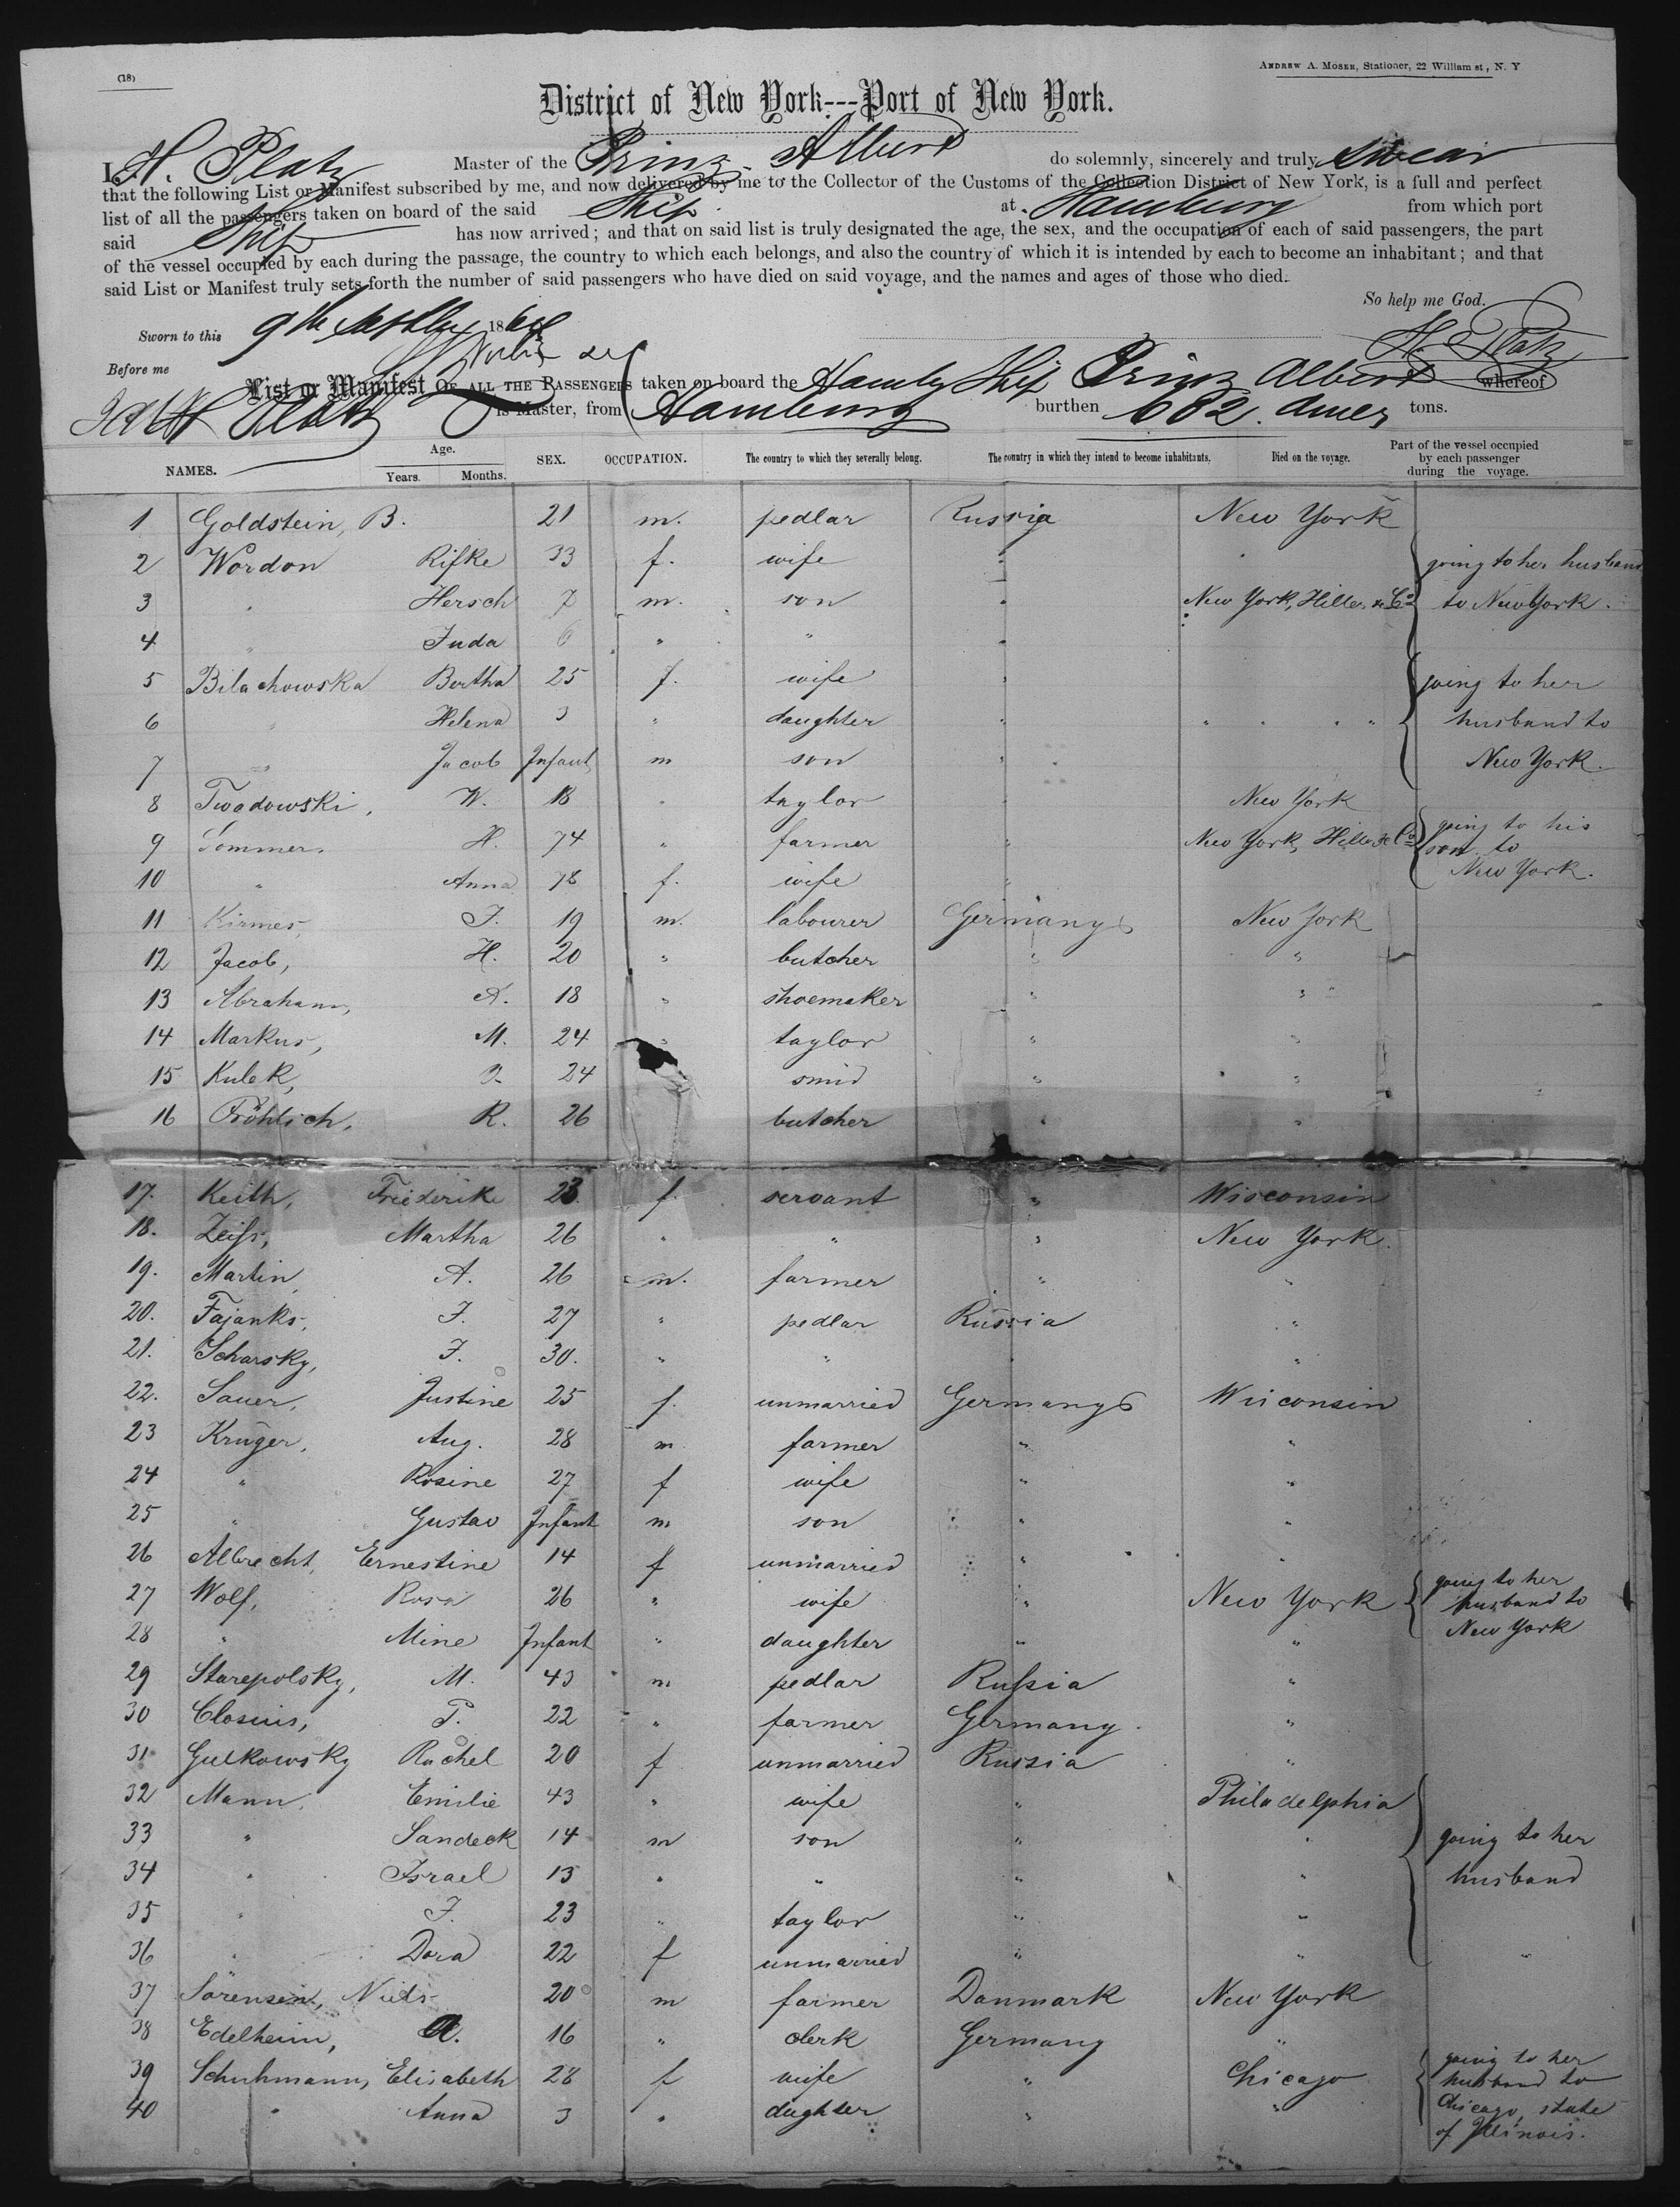 (18)
ANDREW A. MOSER, Stationer, 22 William st, N. Y
District of New York---Port of New York.
I, H. Platz Master of the Prinz Albert do solemnly, sincerely and truly swear
that the following List or Manifest subscribed by me, and now delivered by me to the Collector of the Customs of the Collection District of New York, is a full and perfect
list of all the passengers taken on board of the said Ship at Hamburg from which port
said Ship has now arrived; and that on said list is truly designated the age, the sex, and the occupation of each of said passengers, the part
of the vessel occupied by each during the passage, the country to which each belongs, and also the country of which it is intended by each to become an inhabitant; and that
said List or Manifest truly sets forth the number of said passengers who have died on said voyage, and the names and ages of those who died.
So help me God.
Sworn to this 9th 186
H. Platz
Before me
List or Manifest OF ALL THE PASSENGERS taken on board the Hambg Ship Prinz Albert whereof
H Platz is Master, from Hamburg burthen 682. tons.
NAMES. Age. Years. Months. SEX. OCCUPATION. The country to which they severally belong. The country in which they intend to become inhabitants. Died on the voyage. Part of the vessel occupied by each passenger during the voyage.
1 Goldstein, B. 21 m. pedlar Russia New York
2 Wordon Rifke 33 f. wife " " going to her husband
3 " Hersch 7 m. son " New York, Hiller & Co to New York.
4 " Juda 6 " " "
5 Bilachowska Bertha 25 f. wife " going to her
6 " Helena 3 " daughter " " " " " husband to
7 " Jacob Infant m son " New York.
8 Twadowski, W. 18 " taylor " New York
9 Sommer, H. 74 " farmer " New York, Hiller & Co going to his son to
10 " Anna 78 f. wife " New York.
11 Kirmes, J. 19 m. labourer Germany New York
12 Jacob, H. 20 " butcher " "
13 Abraham, A. 18 " shoemaker " "
14 Markus, M. 24 " taylor " "
15 Kulek, 24 smid " "
16 Fröhlich, R. 26 butcher " "
17. Keith, Friederike 23 f. servant " Wisconsin
18. Zeiss, Martha 26 " " " New York.
19. Martin, A. 26 m. farmer " "
20. Fajanks, J. 27 " pedlar Russia "
21. Scharsky, J. 30. " " " "
22. Sauer, Justine 25 f. unmarried Germany Wisconsin
23 Krüger, Aug. 28 m farmer " "
24 " Rosine 27 f wife " "
25 " Gustav Infant m son " "
26 Albrecht, Ernestine 14 f unmarried " "
27 Wolf, Rosa 26 " wife " New York going to her husband to
28 " Mine Infant " daughter " " New York
29 Starepolsky, M. 43 m pedlar Russia "
30 Closius, P. 22 " farmer Germany "
31 Gulkowsky Rachel 20 f unmarried Russia "
32 Mann, Emilie 43 " wife " Philadelphia
33 " Sandeck 14 m son " " going to her
34 " Israel 13 " " " " husband
35 " J. 23 " taylor " "
36 " Dora 22 f unmarried " " "
37 Sörensen, Niels 20 m farmer Danmark New York
38 Edelheim, A. 16 " clerk Germany "
39 Schuhmann, Elisabeth 28 f wife " Chicago going to her husband to
40 " Anna 3 " dughter " " Chicago, state
of Illinois.